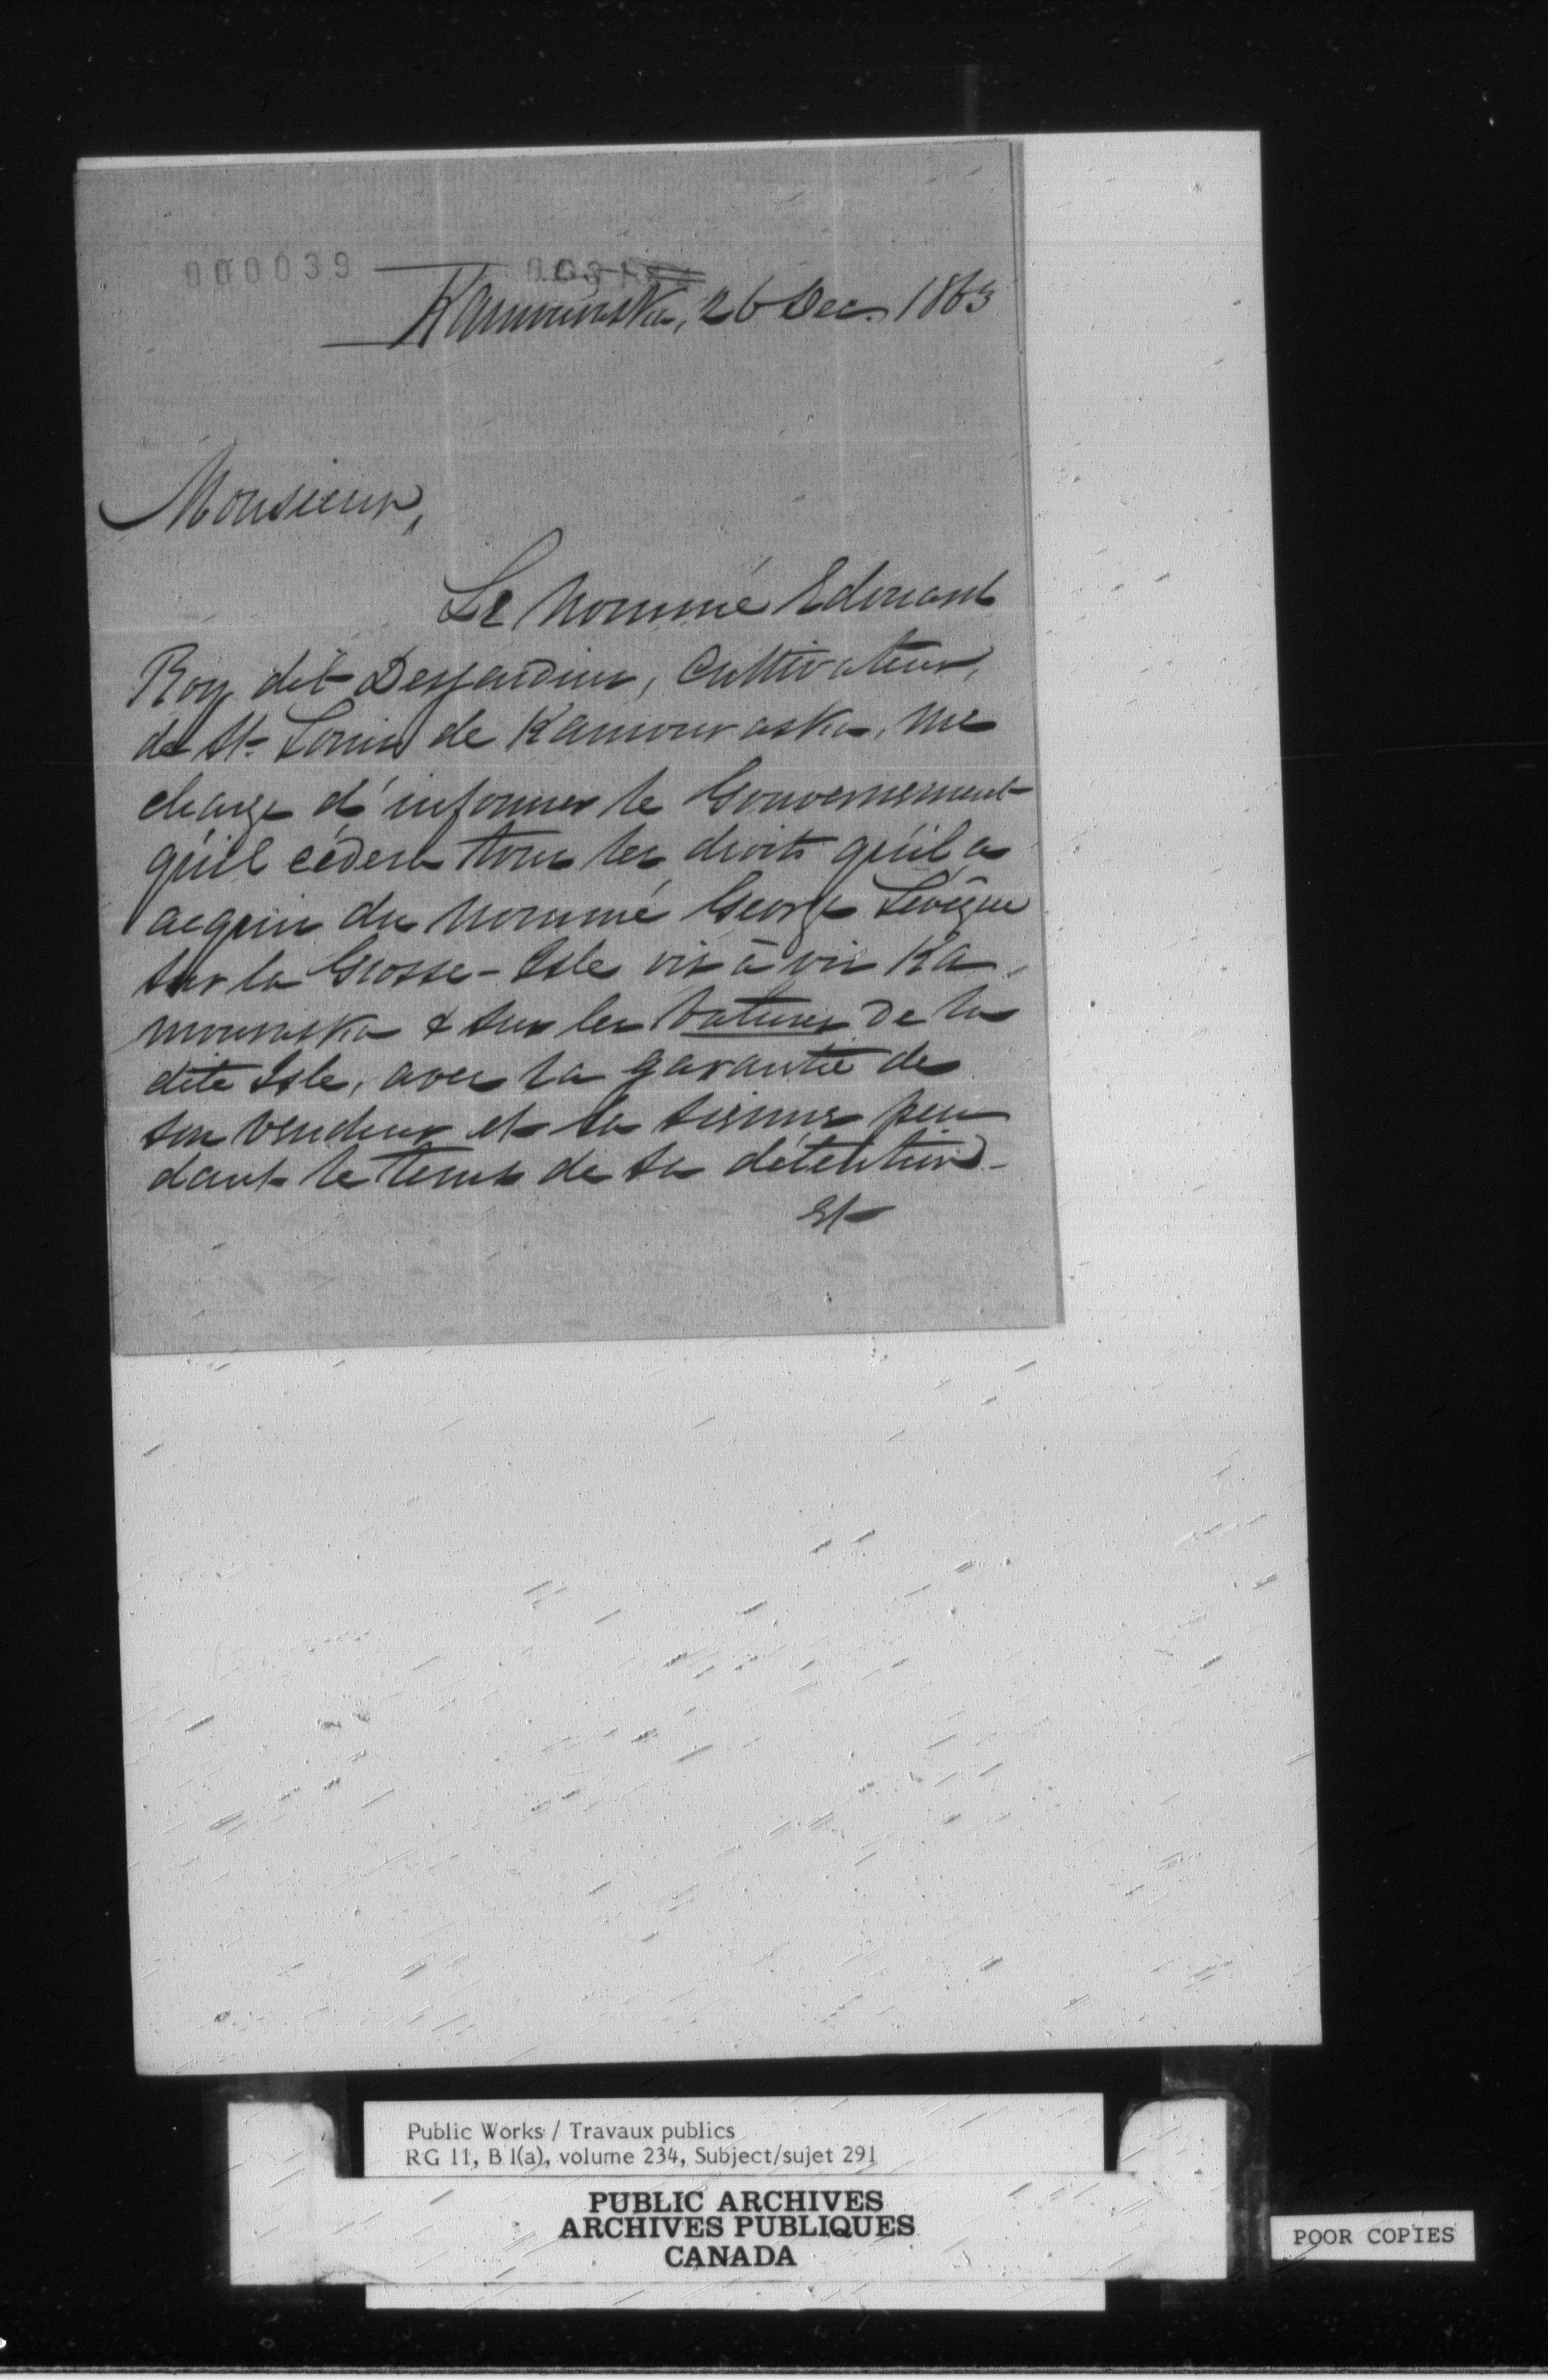 000039
Kamouraska, 26 Dec. 1863
Monsieur,
Le nommé Edouard
Roy dit Desjardins, Cultivateur,
de St. Louis de Kamouraska, me
charge d'informer le Gouvernement
qu'il cèdera tous les droits qu'il a
acquis du nommé George Lévêque
sur la Grosse-Isle vis à vis Ka
mouraska & sur les batures de la
dite Isle, avec la garantie de
son vendeur et la sienne pen
dant le tems de sa détention.
Et
Public Works / Travaux publics
RG 11, B 1(a), volume 234, Subject/sujet 291
PUBLIC ARCHIVES
ARCHIVES PUBLIQUES
CANADA
POOR COPIES